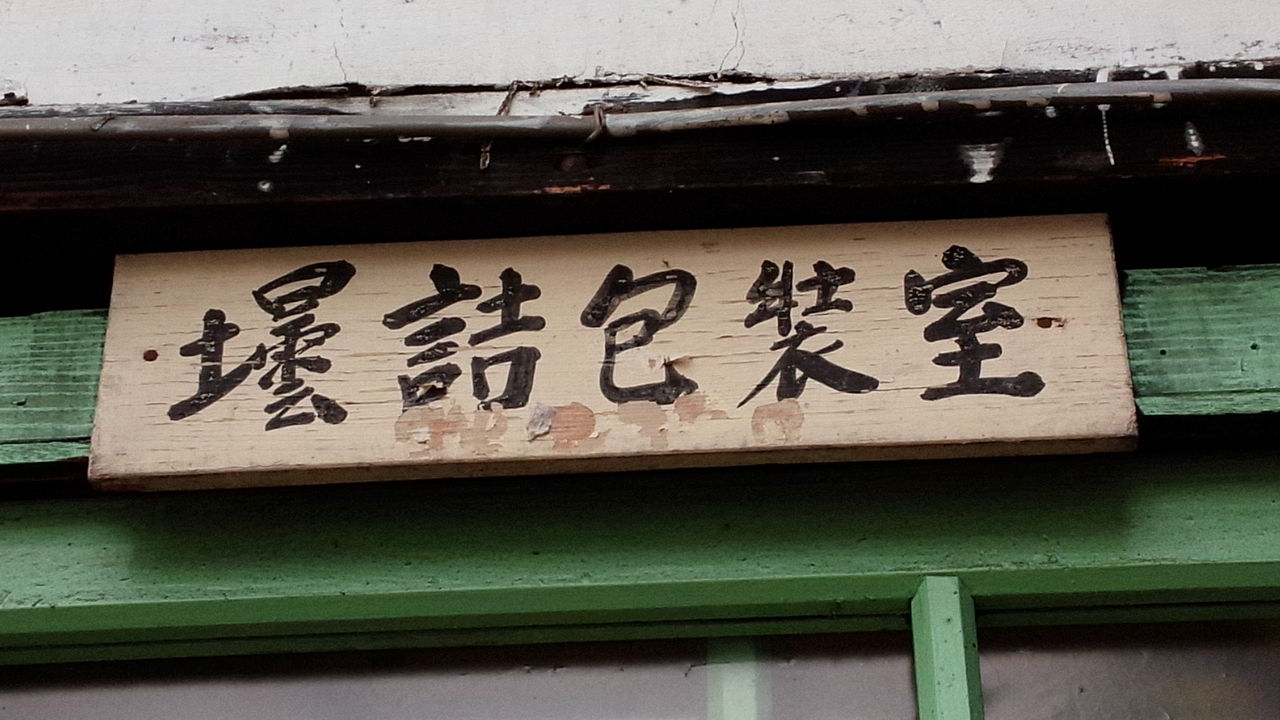 壜詰包装室